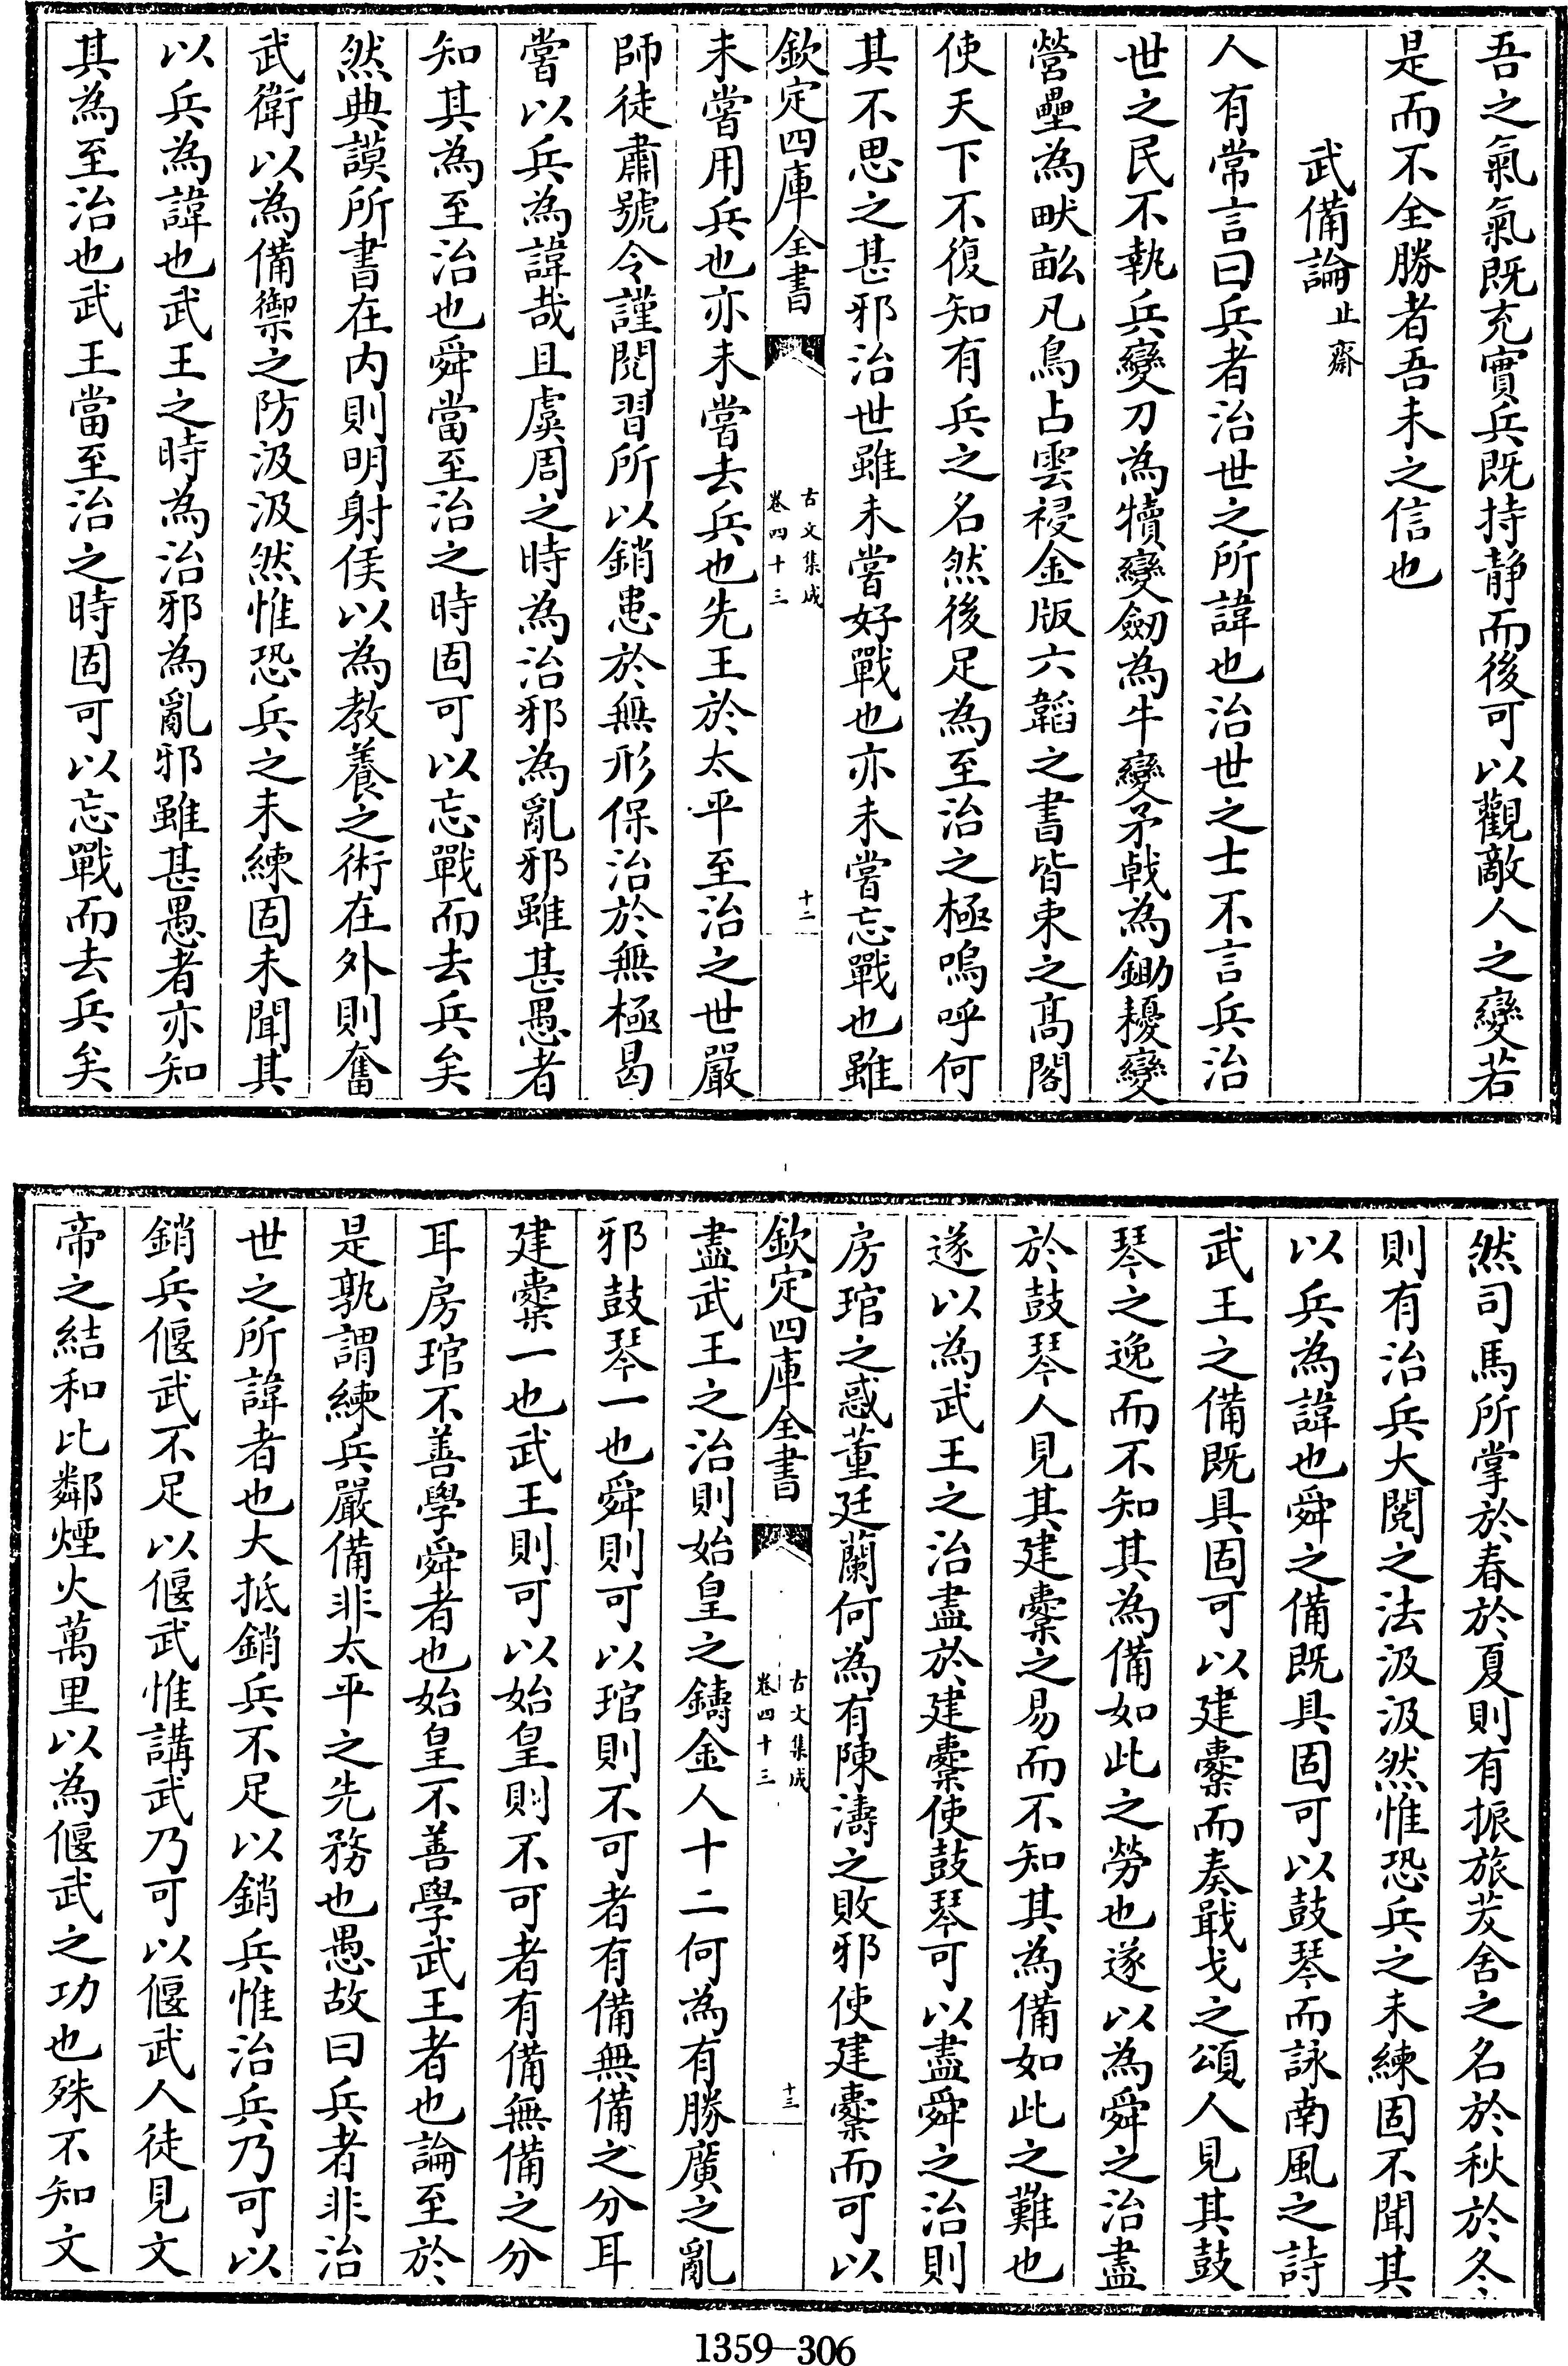 吾之氣氣既充實兵既持靜而後可以觀敵人之變若
是而不全勝者吾未之信也
武備論止齋
人有常言曰兵者治世之所諱也治世之士不言兵治
世之民不執兵變刀為犢變劒為牛變矛戟為鋤耰變
營壘為畎畝凡鳥占雲祲金版六韜之書皆束之高閣
使天下不復知有兵之名然後足為至治之極嗚呼何
其不思之甚邪治世雖未嘗好戰也亦未嘗忘戰也雖
欽定四庫全書 古文集成 卷四十三 十二
未嘗用兵也亦未嘗去兵也先王於太平至治之世嚴
師徒肅號令謹閱習所以銷患於無形保治於無極曷
嘗以兵為諱哉且虞周之時為治邪為亂邪雖甚愚者
知其為至治也舜當至治之時固可以忘戰而去兵矣
然典謨所書在內則明射侯以為教養之術在外則奮
武衛以為備禦之防汲汲然惟恐兵之未練固未聞其
以兵為諱也武王之時為治邪為亂邪雖甚愚者亦知
其為至治也武王當至治之時固可以忘戰而去兵矣
然司馬所掌於春於夏則有振旅茇舍之名於秋於冬
則有治兵大閱之法汲汲然惟恐兵之未練固不聞其
以兵為諱也舜之備既具固可以鼓琴而詠南風之詩
武王之備既具固可以建櫜而奏戢戈之頌人見其鼓
琴之逸而不知其為備如此之勞也遂以為舜之治盡
於鼓琴人見其建櫜之易而不知其為備如此之難也
遂以為武王之治盡於建櫜使鼓琴可以盡舜之治則
房琯之惑董廷蘭何為有陳濤之敗邪使建櫜而可以
欽定四庫全書 古文集成 卷四十三 十三
盡武王之治則始皇之鑄金人十二何為有勝廣之亂
邪鼓琴一也舜則可以琯則不可者有備無備之分耳
建櫜一也武王則可以始皇則不可者有備無備之分
耳房琯不善學舜者也始皇不善學武王者也論至於
是孰謂練兵嚴備非太平之先務也愚故曰兵者非治
世之所諱者也大抵銷兵不足以銷兵惟治兵乃可以
銷兵偃武不足以偃武惟講武乃可以偃武人徒見文
帝之結和比鄰煙火萬里以為偃武之功也殊不知文
1359-306